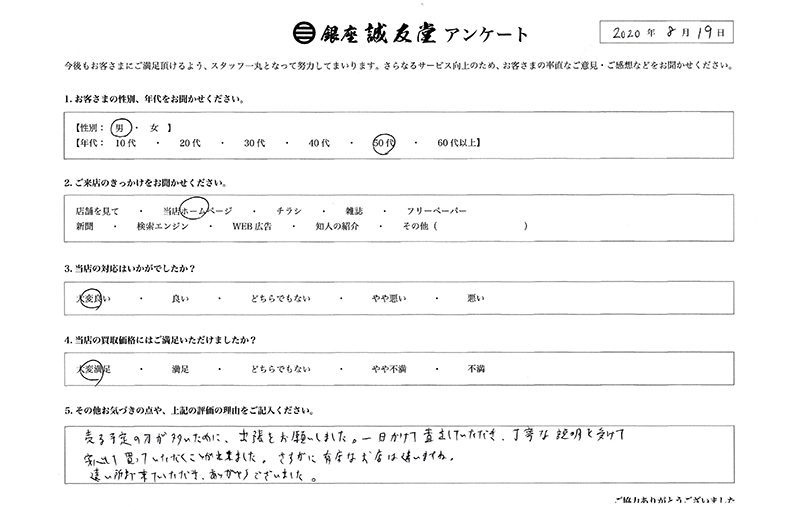 銀座 誠友堂 アンケート
2020 年 8 月 19 日
今後もお客さまにご満足頂けるよう、スタッフ一丸となって努力してまいります。さらなるサービス向上のため、お客さまの率直なご意見・ご感想などをお聞かせください。
1. お客さまの性別、年代をお聞かせください。
【性別： 男 ・ 女 】
【年代： 10 代 ・ 20 代 ・ 30 代 ・ 40 代 ・ 50 代 ・ 60 代以上】
2. ご来店のきっかけをお聞かせください。
店舗を見て ・ 当店ホームページ ・ チラシ ・ 雑誌 ・ フリーペーパー
新聞 ・ 検索エンジン ・ WEB 広告 ・ 知人の紹介 ・ その他（ ）
3. 当店の対応はいかがでしたか？
大変良い ・ 良い ・ どちらでもない ・ やや悪い ・ 悪い
4. 当店の買取価格にはご満足いただけましたか？
大変満足 ・ 満足 ・ どちらでもない ・ やや不満 ・ 不満
5. その他お気づきの点や、上記の評価の理由をご記入ください。
売る予定の刀が多いために、出張をお願いしました。一日かけて査定していただき、丁寧な説明を受けて
安心して買っていただくことが出来ました。さすがに有名なお店は違いますね。
遠い所まで来ていただき、ありがとうございました。
ご協力ありがとうございました